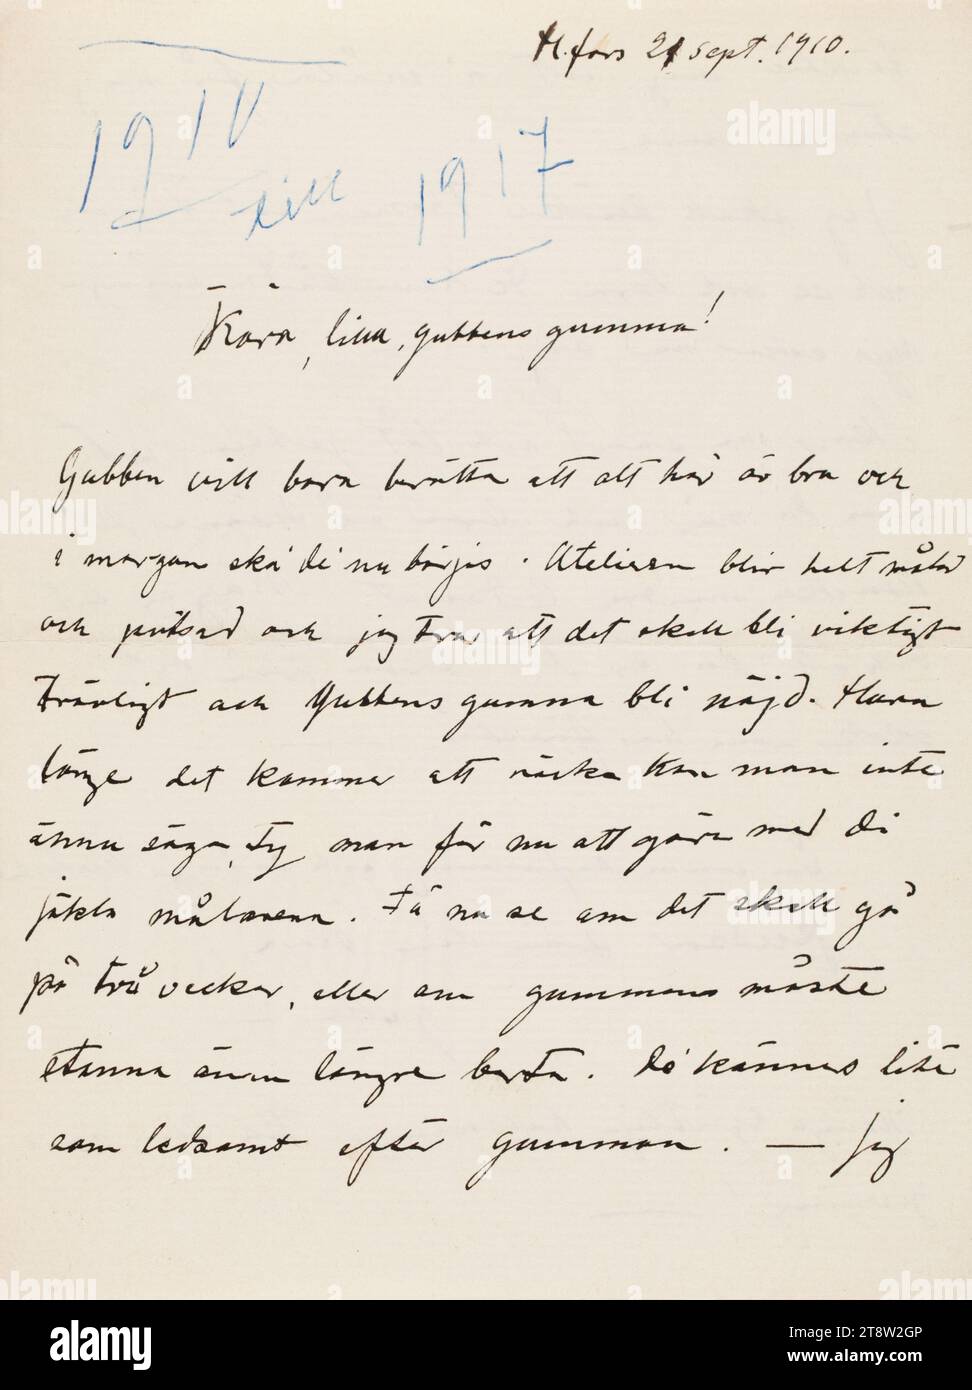 H.fors 21 sept. 1910.
1910
till
1917
Kära, lilla, gubbens gumma!
Gubben vill bara berätta att allt här är bra och
i morgon ska' di nu börja. Atelieren blir helt målad
och putsad och jag tror att det skall bli viktigt
trävligt och gubbens gumma bli nöjd. Huru
länge det kommer att räcka kan man inte
ännu säga, ty man får nu att göra med di
jäkla målarena. Få nu se om det skall gå
på två veckor, eller om gumman måste
stanna ännu längre borta. Dä kännes lite
som ledsamt efter gumman. — Jag
alamy
Image ID: 2T8W2GP
www.alamy.com